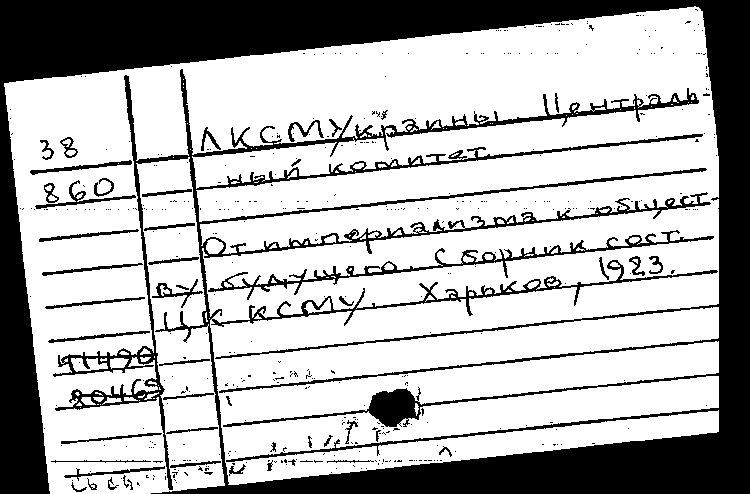 38 ЛКСМУкраины Централь-
860 ный комитет
От империализма к общест-
ву будущего. Сборник сост.
ЦК КСМУ. Харьков, 1923.
91490
80465